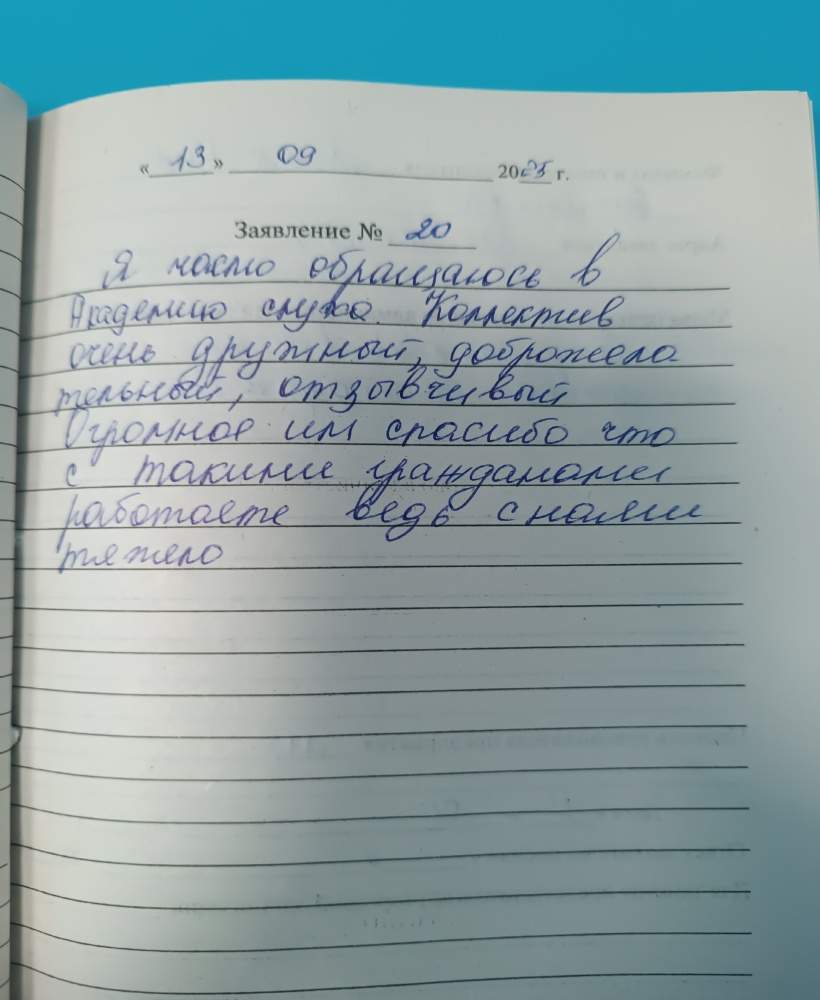 «13» 09 2025 г.
Заявление № 20
Я часто обращаюсь в
Академию слуха. Коллектив
очень дружный, доброжела
тельный, отзывчивый
Огромное им спасибо что
с такими гражданами
работаете ведь с нами
тяжело